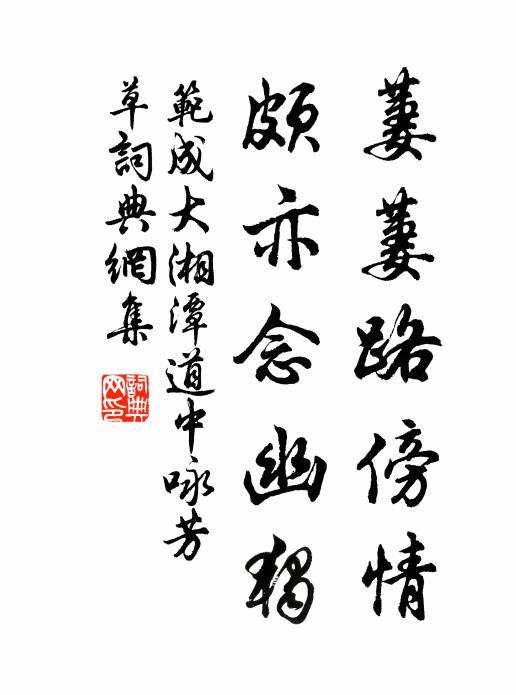 萋萋路傍情
頗亦念幽獨
範成大湘潭道中咏芳
草詞典網集
詞典
网印